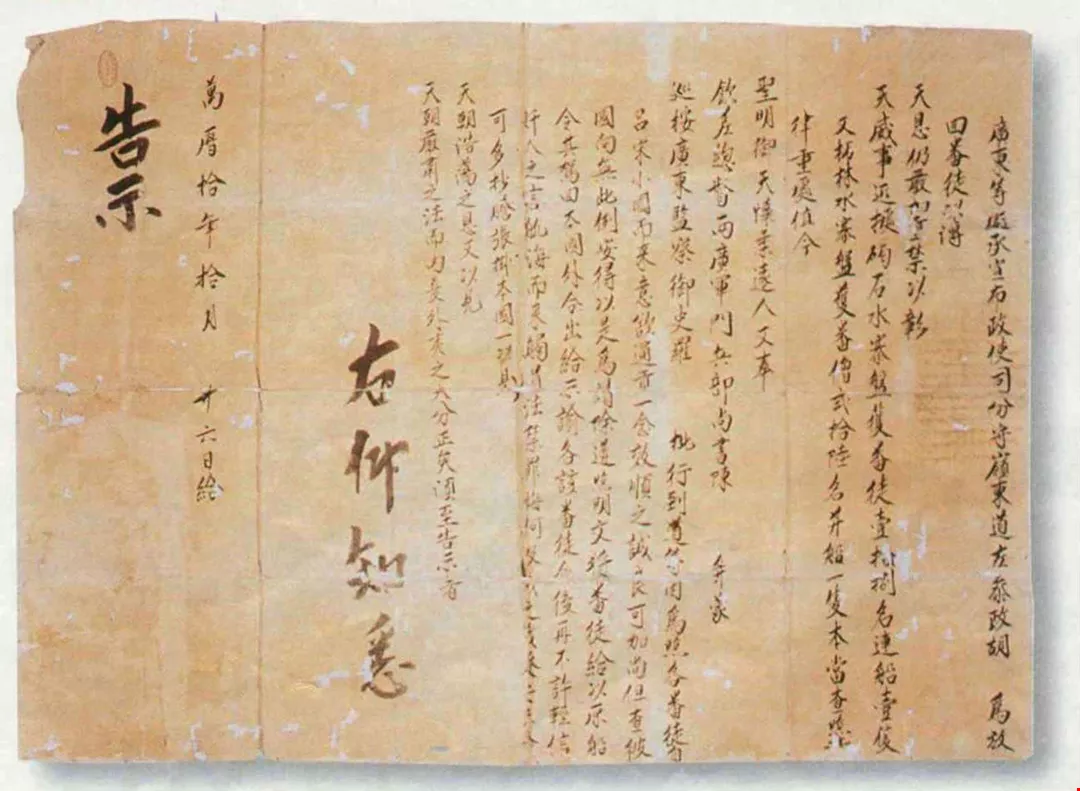 廣東等處承宣布政使司分守嶺東道左參政胡 爲放
回番徒以溥
天恩仍嚴加禁以彰
天威事近據碣石水寨盤獲番徒壹拾捌名連船壹隻
又柘林水寨盤獲番僧貳拾陸名并船一隻本當查照
律重處值今
聖明御天懷柔遠人又奉
欽差總督兩廣軍門兵部尚書陳 會案
巡按廣東監察御史羅 批行到道等因爲照各番徒
呂宋小國而來意欲通市一念效順之誠良可加尚但查彼
國向無此例安得以是爲詞除遵照明文將番徒給以原船
令其揚回本國外合出給示諭各該番徒今後再不許輕信
奸人之言航海而來觸冒法禁罪悔何及
可多抄謄張掛本國一體見
天朝浩蕩之恩又以見
天朝嚴肅之法而內夏外夷之大分正矣須至告示者
右仰知悉
萬曆拾年拾月 廿六日給
告示